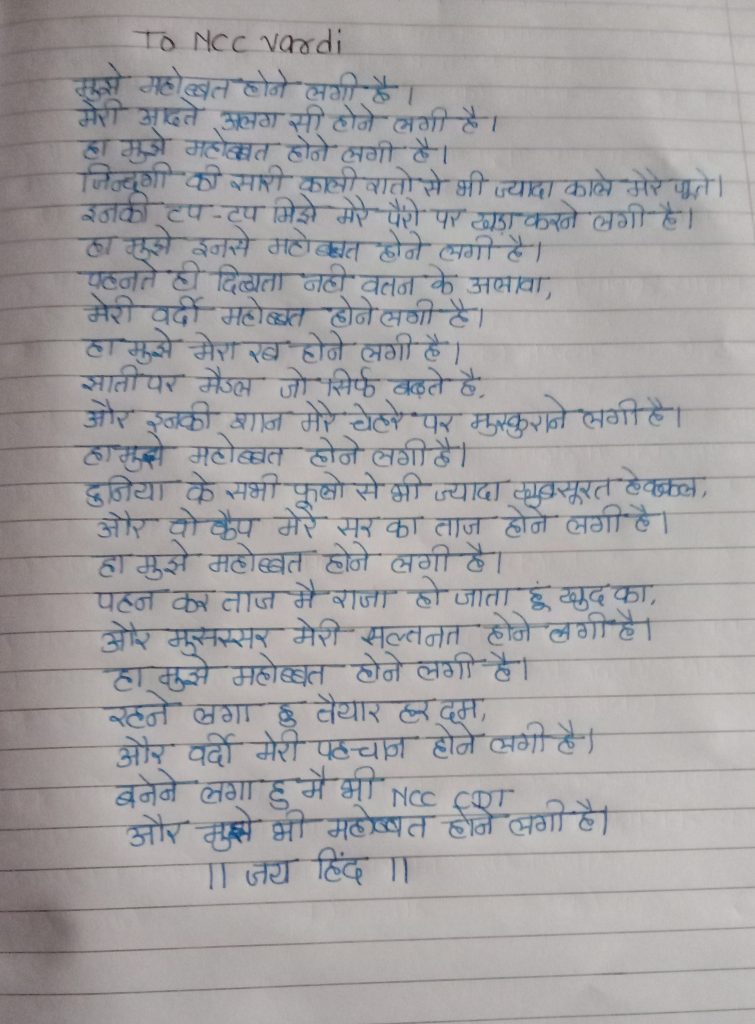 To NCC Vardi
मुझे महोब्बत होने लगी है।
मेरी आदते अलग सी होने लगी है।
हा मुझे महोब्बत होने लगी है।
जिन्दगी की सारी काली रातो से भी ज्यादा काले मेरे
इनकी टप-टप मिझे मेरे पैरो पर खड़ा करने लगी है।
हा मुझे इनसे महोब्बत होने लगी है।
पहनते ही दिखता नही वतन के अलावा,
मेरी वर्दी महोब्बत होने लगी है।
हा मुझे मेरा रब होने लगी है।
साती पर मैडल जो सिर्फ बढ़ते है,
और इनकी शान मेरे चेहरे पर मुस्कुराने लगी है।
हा मुझे महोब्बत होने लगी है।
दुनिया के सभी फूलो से भी ज्यादा खुबसूरत हेक्कल,
और वो कैप मेरे सर का ताज होने लगी है।
हा मुझे महोब्बत होने लगी है।
पहन कर ताज मै राजा हो जाता हूं खुद का,
और मुसस्सर मेरी सल्तनत होने लगी है।
हा मुझे महोब्बत होने लगी है।
रहने लगा हु तैयार हर दम,
और वर्दी मेरी पहचान होने लगी है।
बनेने लगा हु मै भी NCC CDT
और मुझे भी महोब्बत होने लगी है।
|| जय हिंद ||